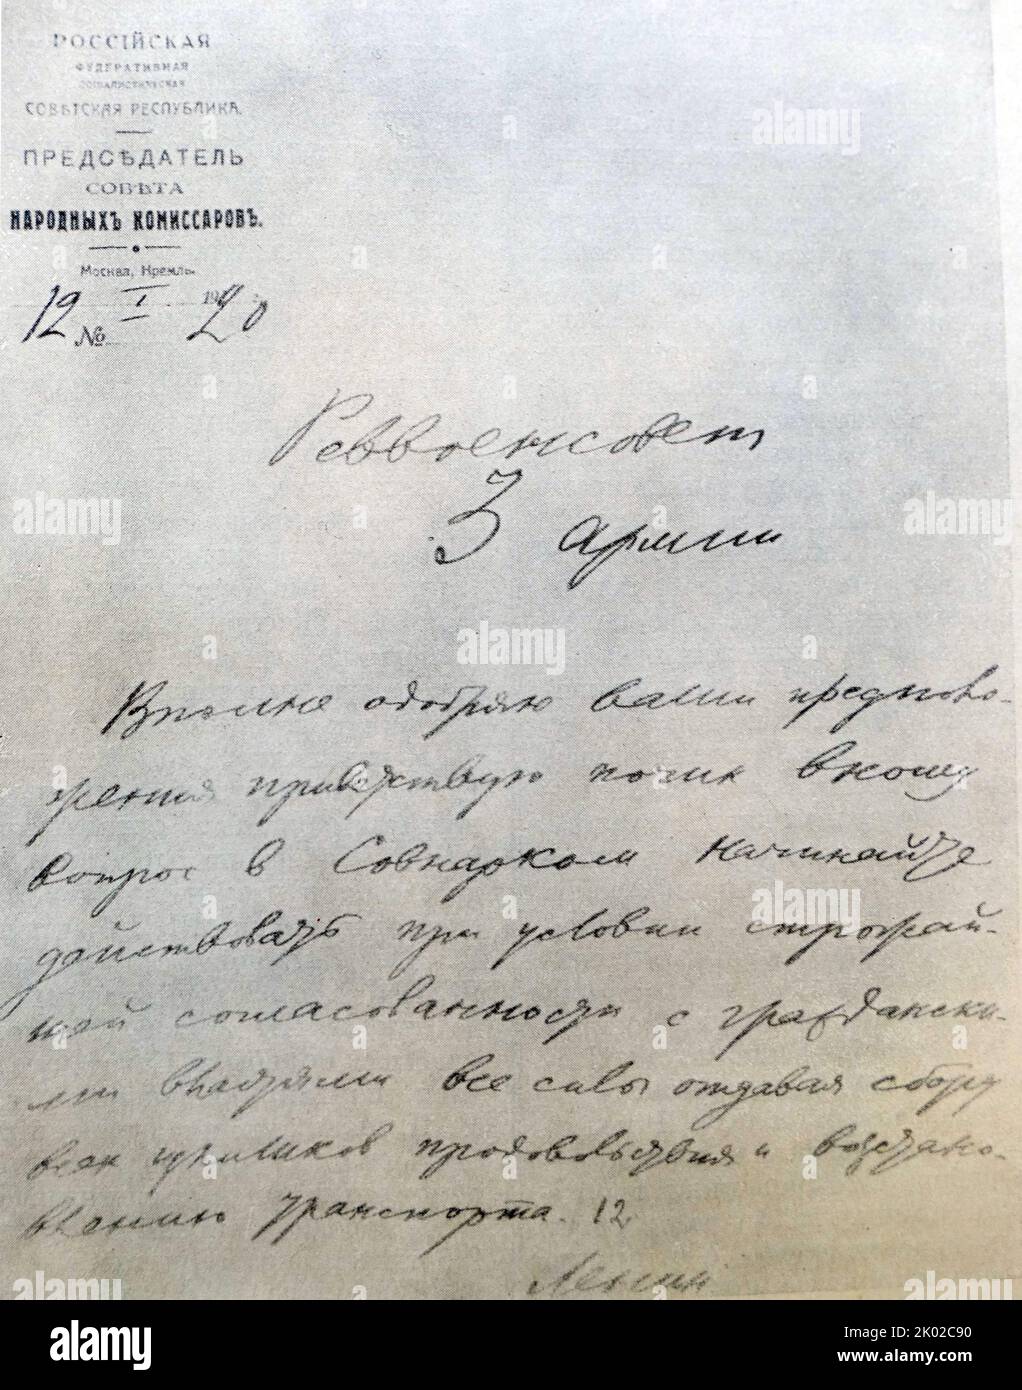 РОССІЙСКАЯ
ФЕДЕРАТИВНАЯ
СОЦІАЛИСТИЧЕСКАЯ
СОВѢТСКАЯ РЕСПУБЛИКА.
ПРЕДСѢДАТЕЛЬ
СОВѢТА
НАРОДНЫХЪ КОМИССАРОВЪ.
Москва, Кремль.
12 I 1920
№
Реввоенсовет
3 армии
Вполне одобряю ваши предполо-
жения приветствую почин вношу
вопрос в Совнарком Начинайте
действовать при условии строжай-
шей согласованности с граждански-
ми властями все силы отдавая сбору
всех излишков продовольствия и восстано-
влению транспорта. 12
Ленин
alamy
alamy
Image ID: 2K02C90
www.alamy.com